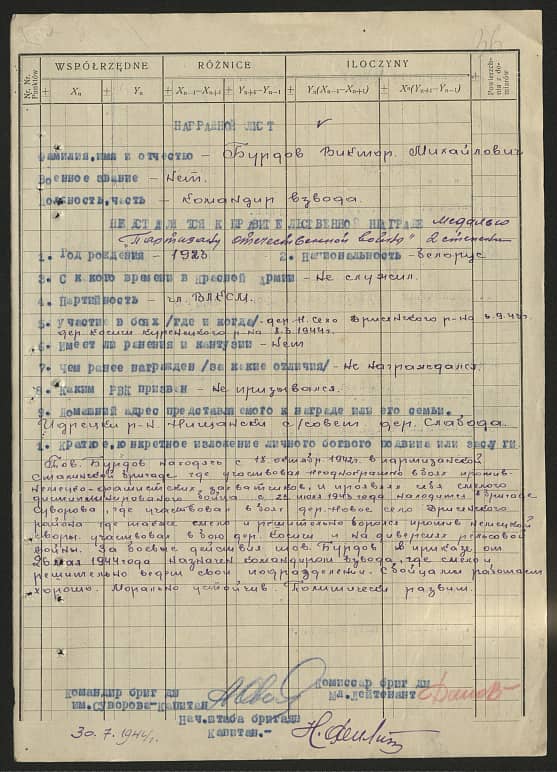 36
Nr. Nr. Punktów
WSPÓŁRZĘDNE RÓŻNICE ILOCZYNY
± Xn ± Yn ± Xn−1−Xn+1 ± Yn+1−Yn−1 ± Yn(Xn−1−Xn+1) ± Xn(Yn+1−Yn−1) ±
НАГРАДНОЙ ЛИСТ
Фамилия, имя и отчество – Бурдов Виктор Михайлович
Военное звание – Нет.
Должность, часть – командир взвода.
ПРЕДСТАВЛЯЕТСЯ К ПРАВИТЕЛЬСТВЕННОЙ НАГРАДЕ медалью
"Партизану отечественной войны" 2 степени
1. Год рождения – 1923 2. Национальность – белорус
3. С какого времени в Красной Армии – Не служил.
4. Партийность – чл. ВЛКСМ.
5. Участие в боях /где и когда/ – дер. Н. Село Дриссенского р-на 6.9.43г.
дер. Косиш р-на 1944г.
6. Имеет ли ранения и кантузии – Нет
7. Чем ранее награжден /за какие отличия/ – Не награждался.
8. Каким РВК призван – Не призывался.
9. Домашний адрес представляемого к награде или его семьи.
Идрецкий р-н. Нищанский с/совет дер. Слабода.
1. Краткое, конкретное изложение личного боевого подвига или заслуги.
Тов. Бурдов находясь с 18 октября 1942г в партизанской
Сталинской бригаде где участвовал неоднократно в боях против
немецко-фашистских захватчиков, и проявлял себя смелого
дисциплинированого бойца с 22 1943 года находится в бригаде
Суворова, где участвовал в боях дер. Новое село Дриссенского
района где также смело и решительно боролся против немецкой
своры. участвовал в бою дер. Косиш и на диверсиях рельсовой
войны. За боевые действия тов. Бурдов в приказе от
26 мая 1944 года назначен командиром взвода, где смело и
решительно ведет свои подразделении. С бойцами работает
хорошо. Морально устойчив. Политически развит.
Командир бригады Комиссар бригады
им. Суворова-капитан Мл. Лейтенант
Нач. штаба бригады
Капитан.-
30.7.1944г.